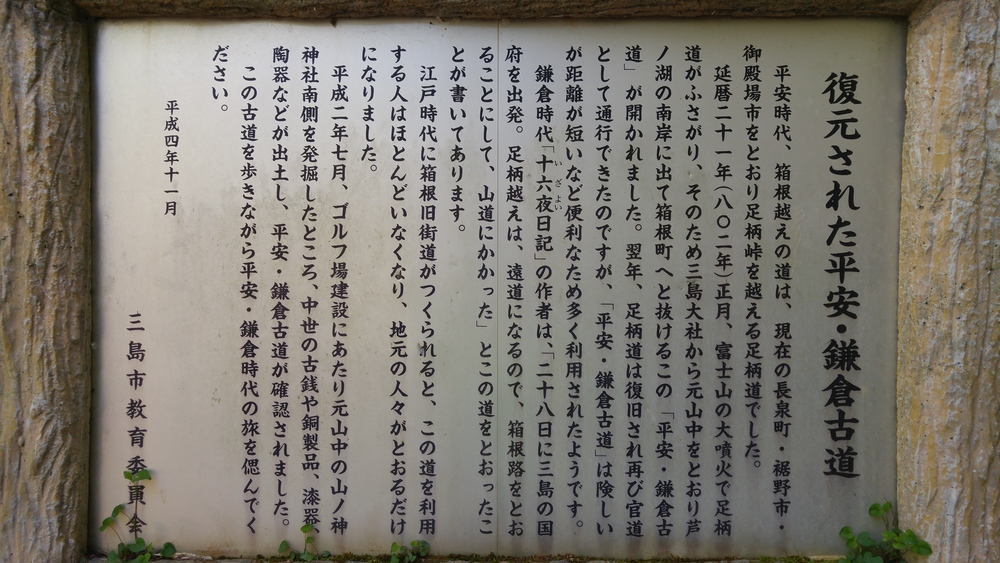 復元された平安・鎌倉古道
平安時代、箱根越えの道は、現在の長泉町・裾野市・
御殿場市をとおり足柄峠を越える足柄道でした。
延暦二十一年(八〇二年)正月、富士山の大噴火で足柄
道がふさがり、そのため三島大社から元山中をとおり芦
ノ湖の南岸に出て箱根町へと抜けるこの「平安・鎌倉古
道」が開かれました。翌年、足柄道は復旧され再び官道
として通行できたのですが、「平安・鎌倉古道」は険しい
が距離が短いなど便利なため多く利用されたようです。
鎌倉時代「十六夜日記」の作者は、「二十八日に三島の国
いざよい
府を出発。足柄越えは、遠道になるので、箱根路をとお
ることにして、山道にかかった」とこの道をとおったこ
とが書いてあります。
江戸時代に箱根旧街道がつくられると、この道を利用
する人はほとんどいなくなり、地元の人々がとおるだけ
になりました。
平成二年七月、ゴルフ場建設にあたり元山中の山ノ神
神社南側を発掘したところ、中世の古銭や銅製品、漆器、
陶器などが出土し、平安・鎌倉古道が確認されました。
この古道を歩きながら平安・鎌倉時代の旅を偲んでく
ださい。
平成四年十一月
三島市教育委員会